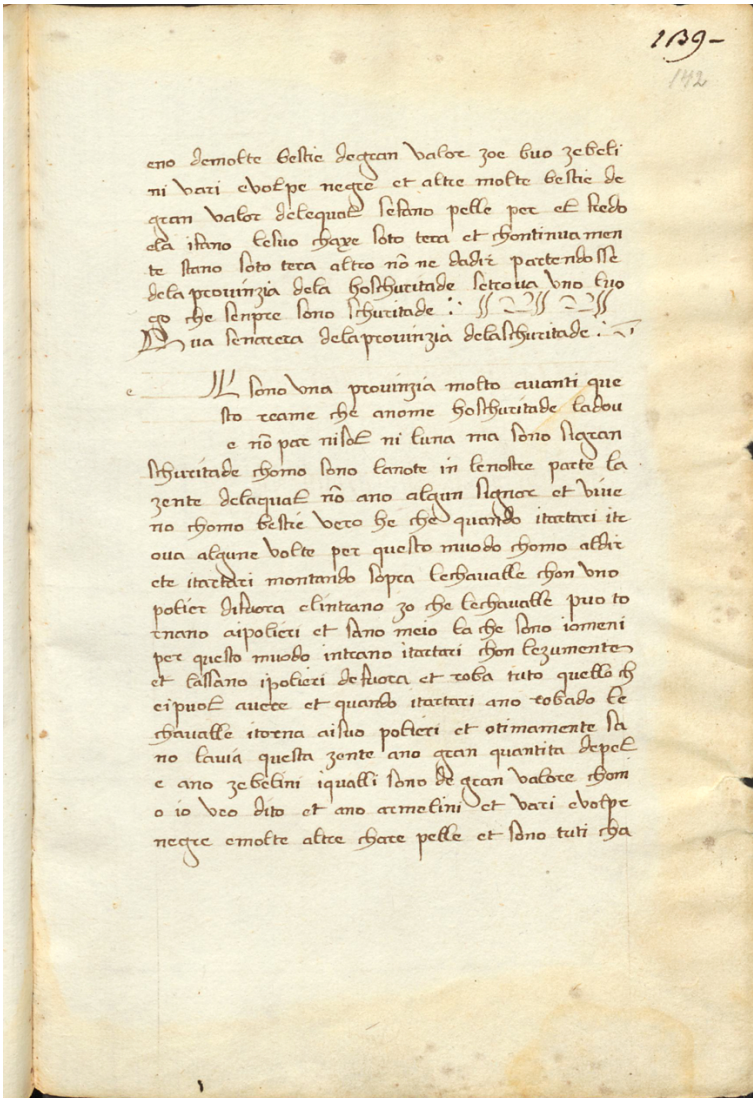 139-
142
eno demolte bestie degran valor zoe livo zebeli
ni vari evolpe negre et altre molte bestie de
gran valor delequal sefano pelle per el fredo
ela ifano lesuo chaxe soto tera et chontinuamen
te stano soto tera altro nõ ne dadir partendosse
dela provinzia dela hoschuritade setrova uno luo
go che senpre sono schuritade
Qua senarera delaprovinzia delaschuritade
e
El sono una provinzia molto avanti que
sto reame che anome hoschuritade ladov
e nõ par nisol ni luna ma sono sigran
schuritade chomo sono lanote in lenostre parte la
zente delaqual nõ ano algun signor et vive
no chomo bestie vero he che quando itartari itr
ova algune volte per questo muodo chomo aldir
ete itartari montando sopra lechavalle chon uno
polier difuora elintrano zo che lechavalle puo to
rnano aipolieri et sano meio la che sono iomeni
per questo muodo intrano itartari chon lezumente
et lassano ipolieri defuora et roba tuto quello ch
eipuol avere et quando itartari ano robado le
chavalle itorna aisuo polieri et otimamente sa
no lavia questa zente ano gran quantita depel
e ano zebelini iqualli sono de gran valore chom
o io veo dito et ano armelini et vari evolpe
negre emolte altre chare pelle et sono tuti cha